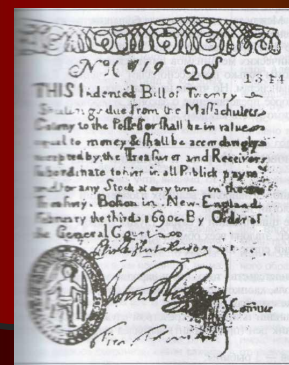 Nº( 919 20ˢ 1314
THIS Indented Bill of Twenty
Shillings due from the Massachusets
Colony to the Possessor shall be in value
equal to money & shall be accordingly
accepted by the Treasurer and Receivers
subordinate to him in all Publick paym
and for any Stock at any time in the
Treasury. Boston in New-England
February the third 1690. By Order of
the General Court
Comitee